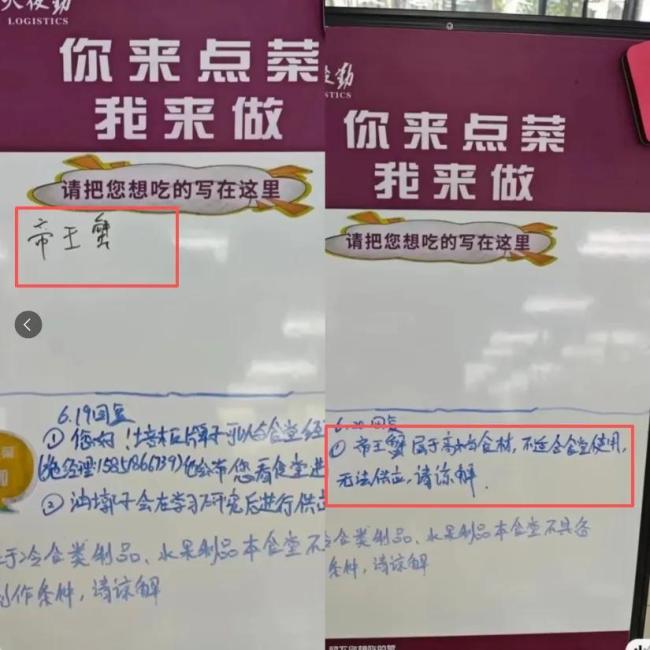 LOGISTICS
你来点菜
我来做
请把您想吃的写在这里
帝王蟹
6.19回复
① 您好！
食堂经
② 油墩子会在学习研究后进行供应
于冷食类制品、水果制品本食堂不
制作条件，请谅解
STICS
你来点菜
我来做
请把您想吃的写在这里
回复
① 帝王蟹属于高档食材，不适合食堂使用，
无法供应，请谅解.
食类制品、水果制品本食堂不具备
条件，请谅解